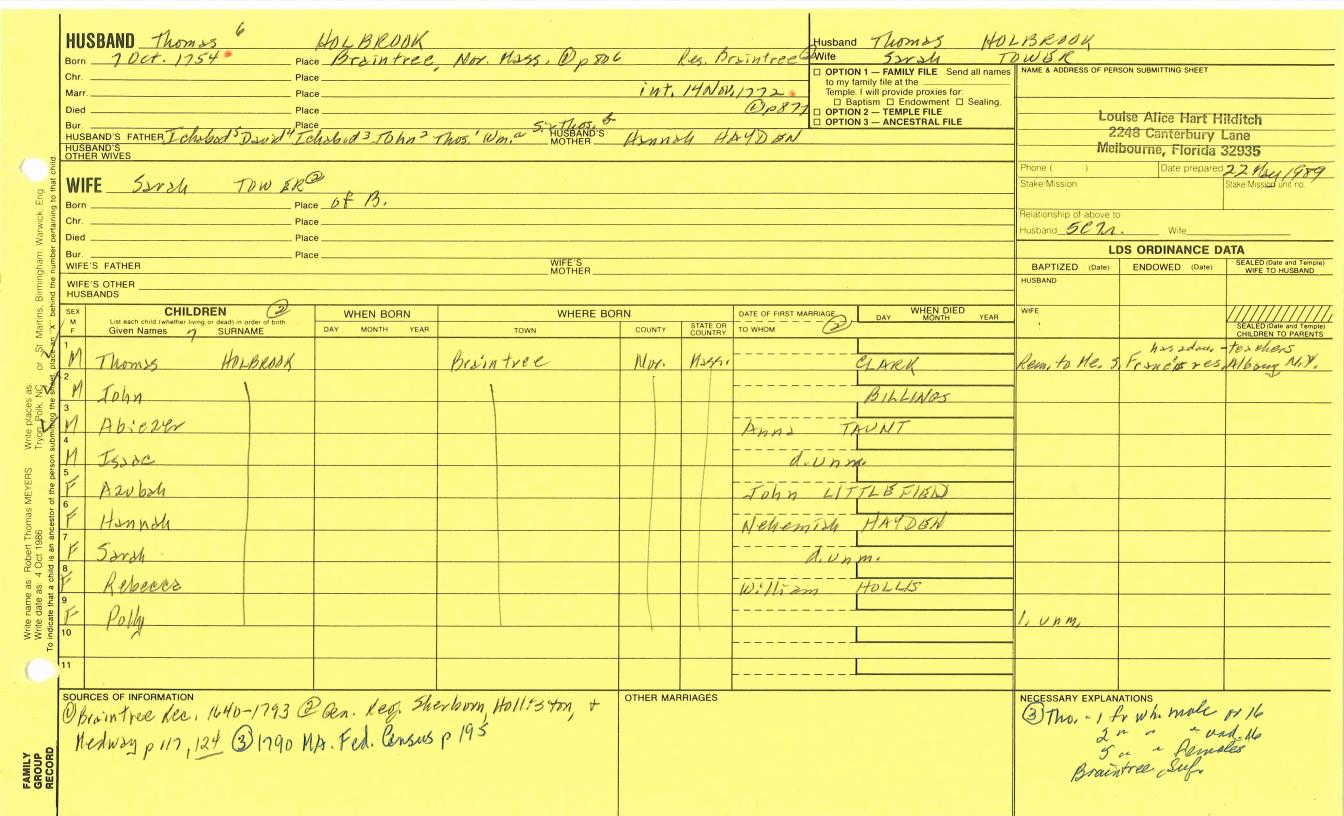 HUSBAND Thomas 6 HOLBROOK
Born 7 Oct. 1754 Place Braintree, Nor. Mass. ① p 806 Res. Braintree ②
Chr. Place
Marr. Place int. 14 Nov. 1772
Died Place ① p 877
Bur. Place
HUSBAND'S FATHER Ichabod 5 David 4 Ichabod 3 John 2 Thos. 1 Wm. a Sir Thos. b HUSBAND'S MOTHER Hannah HAYDEN
HUSBAND'S OTHER WIVES
WIFE Sarah TOWER ②
Born Place of B.
Chr. Place
Died Place
Bur. Place
WIFE'S FATHER WIFE'S MOTHER
WIFE'S OTHER HUSBANDS
Husband Thomas HOLBROOK
Wife Sarah TOWER
☐ OPTION 1 — FAMILY FILE Send all names
to my family file at the
Temple. I will provide proxies for
☐ Baptism ☐ Endowment ☐ Sealing.
☐ OPTION 2 — TEMPLE FILE
☐ OPTION 3 — ANCESTRAL FILE
NAME & ADDRESS OF PERSON SUBMITTING SHEET
Louise Alice Hart Hilditch
2248 Canterbury Lane
Melbourne, Florida 32935
Phone ( ) Date prepared 22 May 1989
Stake/Mission Stake/Mission unit no.
Relationship of above to
Husband Wife
LDS ORDINANCE DATA
BAPTIZED (Date) ENDOWED (Date) SEALED (Date and Temple) WIFE TO HUSBAND
HUSBAND
WIFE
SEALED (Date and Temple) CHILDREN TO PARENTS
SEX M F CHILDREN ② WHEN BORN WHERE BORN DATE OF FIRST MARRIAGE ② WHEN DIED
List each child (whether living or dead) in order of birth
Given Names 7 SURNAME DAY MONTH YEAR TOWN COUNTY STATE OR COUNTRY TO WHOM DAY MONTH YEAR
1 M Thomas HOLBROOK Braintree Nor. Mass. CLARK Rem. to Me. res. Albany N.Y.
2 M John BILLINGS
3 M Abiezer Anna TAUNT
4 M Isaac d. unm.
5 F Azubah John LITTLEFIELD
6 F Hannah Nehemiah HAYDEN
7 F Sarah d. unm.
8 F Rebecca William HOLLIS
9 F Polly 1. unm.
10
11
SOURCES OF INFORMATION
① Braintree Rec. 1640-1793 ② Gen. Reg. Sherborn, Holliston, +
Medway p 117, 124 ③ 1790 MA. Fed. Census p 195
OTHER MARRIAGES
NECESSARY EXPLANATIONS
③ Tho. - 1 fr wh. male or 16
2 " " " und. 16
5 " " females
Braintree, Suf.
Write name as Robert Thomas MEYERS Write places as Tryon, Polk, NC or St Martins, Birmingham, Warwick, Eng
Write date as 4 Oct 1986
To indicate that a child is an ancestor of the person submitting the sheet, place an "X" behind the number pertaining to that child
FAMILY GROUP RECORD